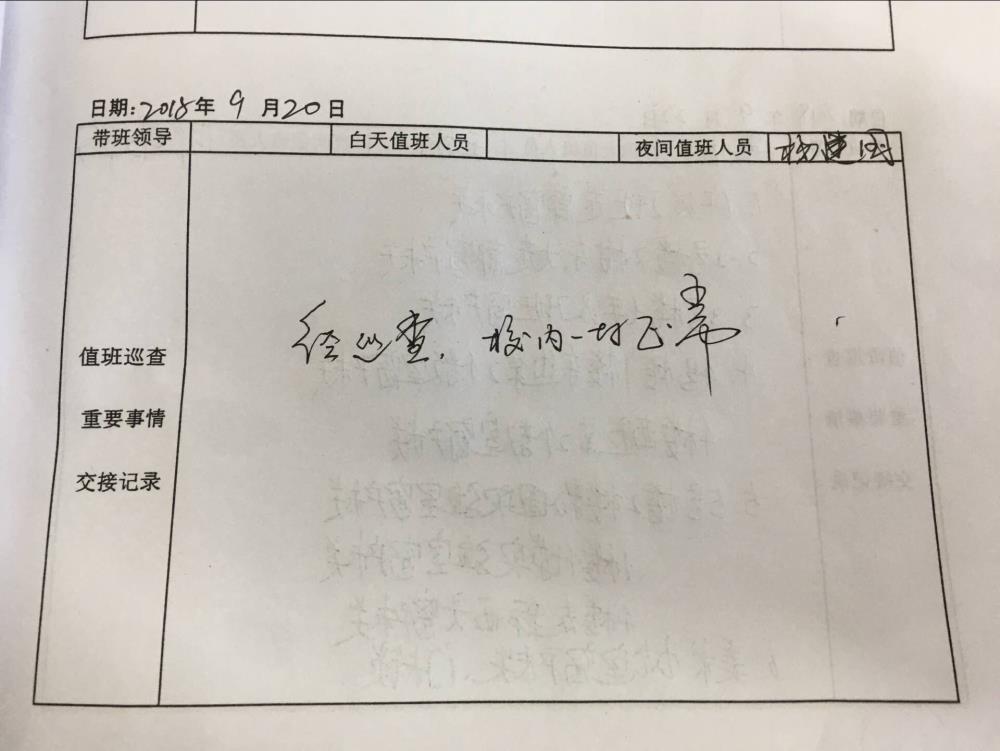 日期:2018年9月20日
带班领导 白天值班人员 夜间值班人员 杨建国
经巡查,校内一切正常
值班巡查
重要事情
交接记录